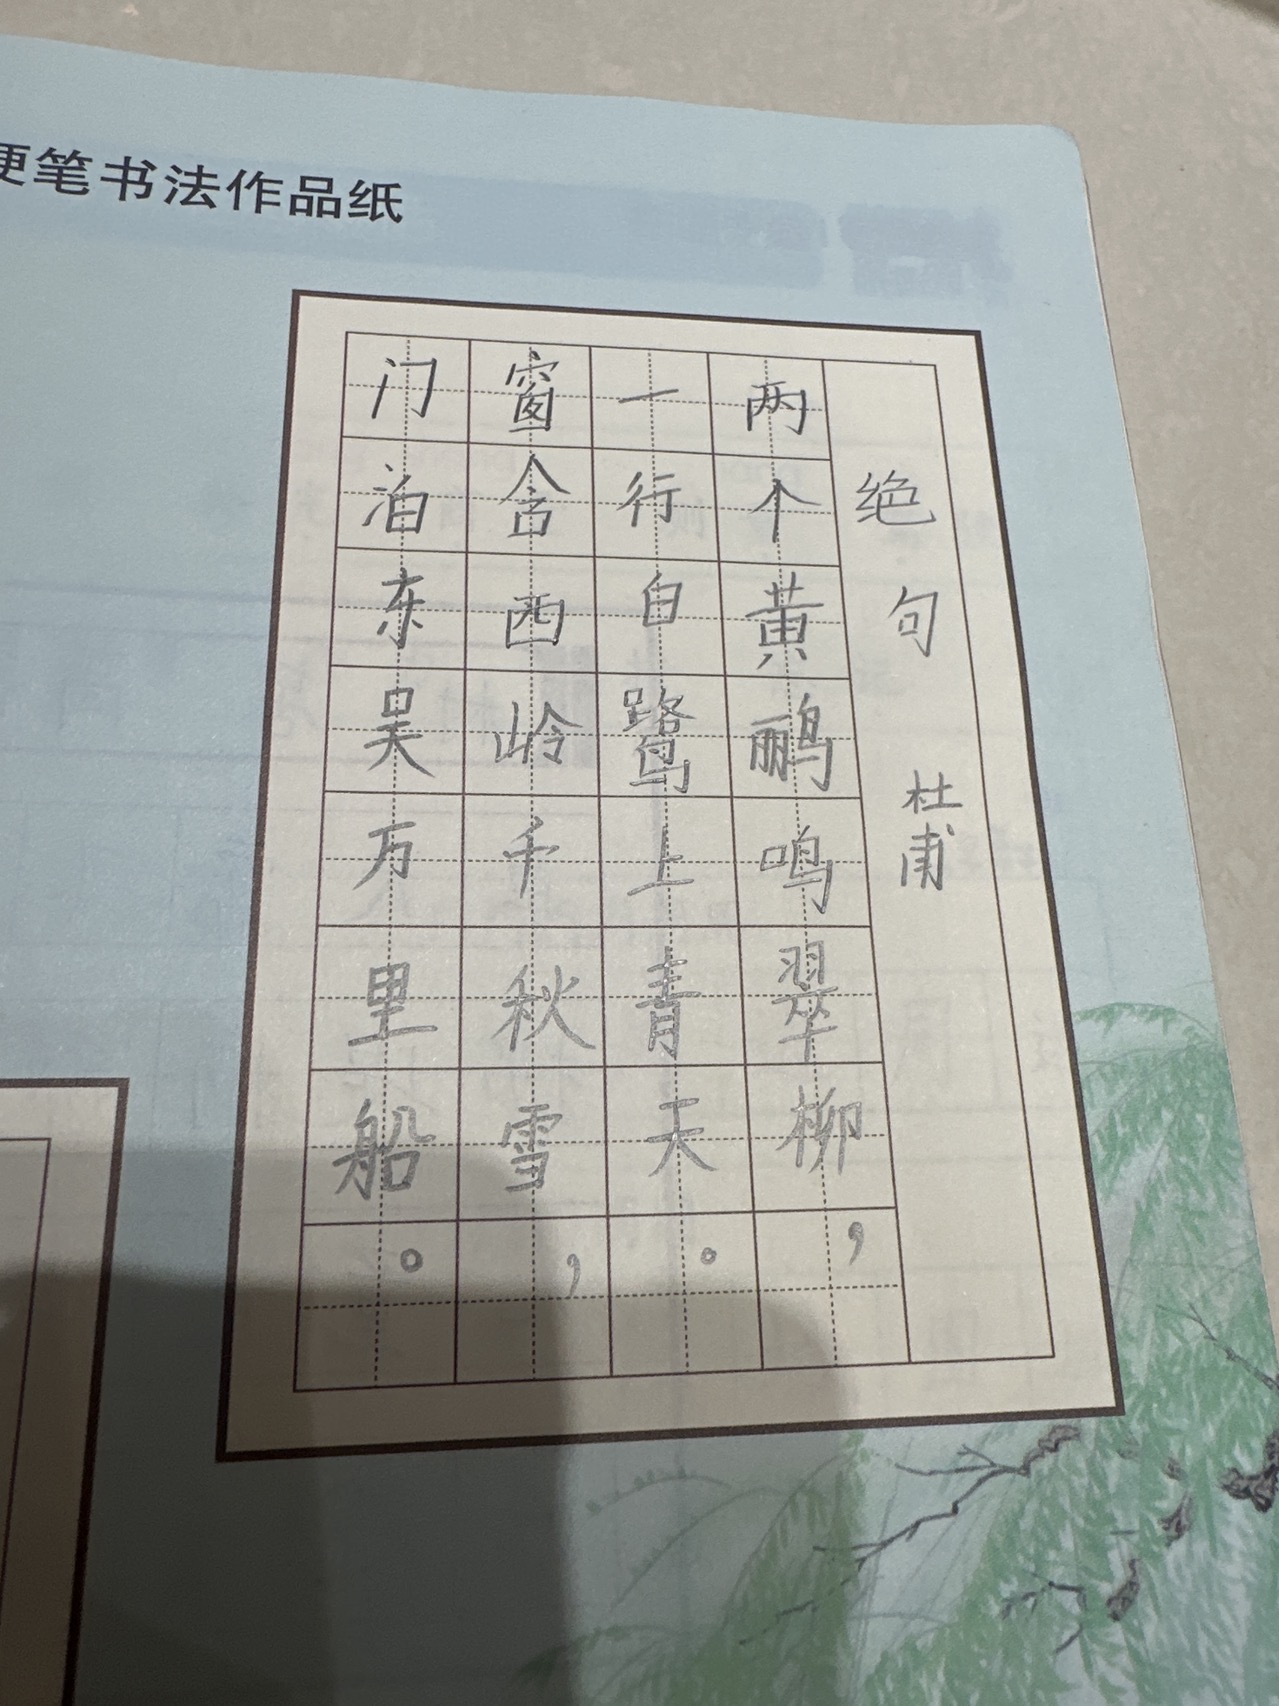 硬笔书法作品纸
绝句
杜甫
两个黄鹂鸣翠柳，
一行白鹭上青天。
窗含西岭千秋雪，
门泊东吴万里船。